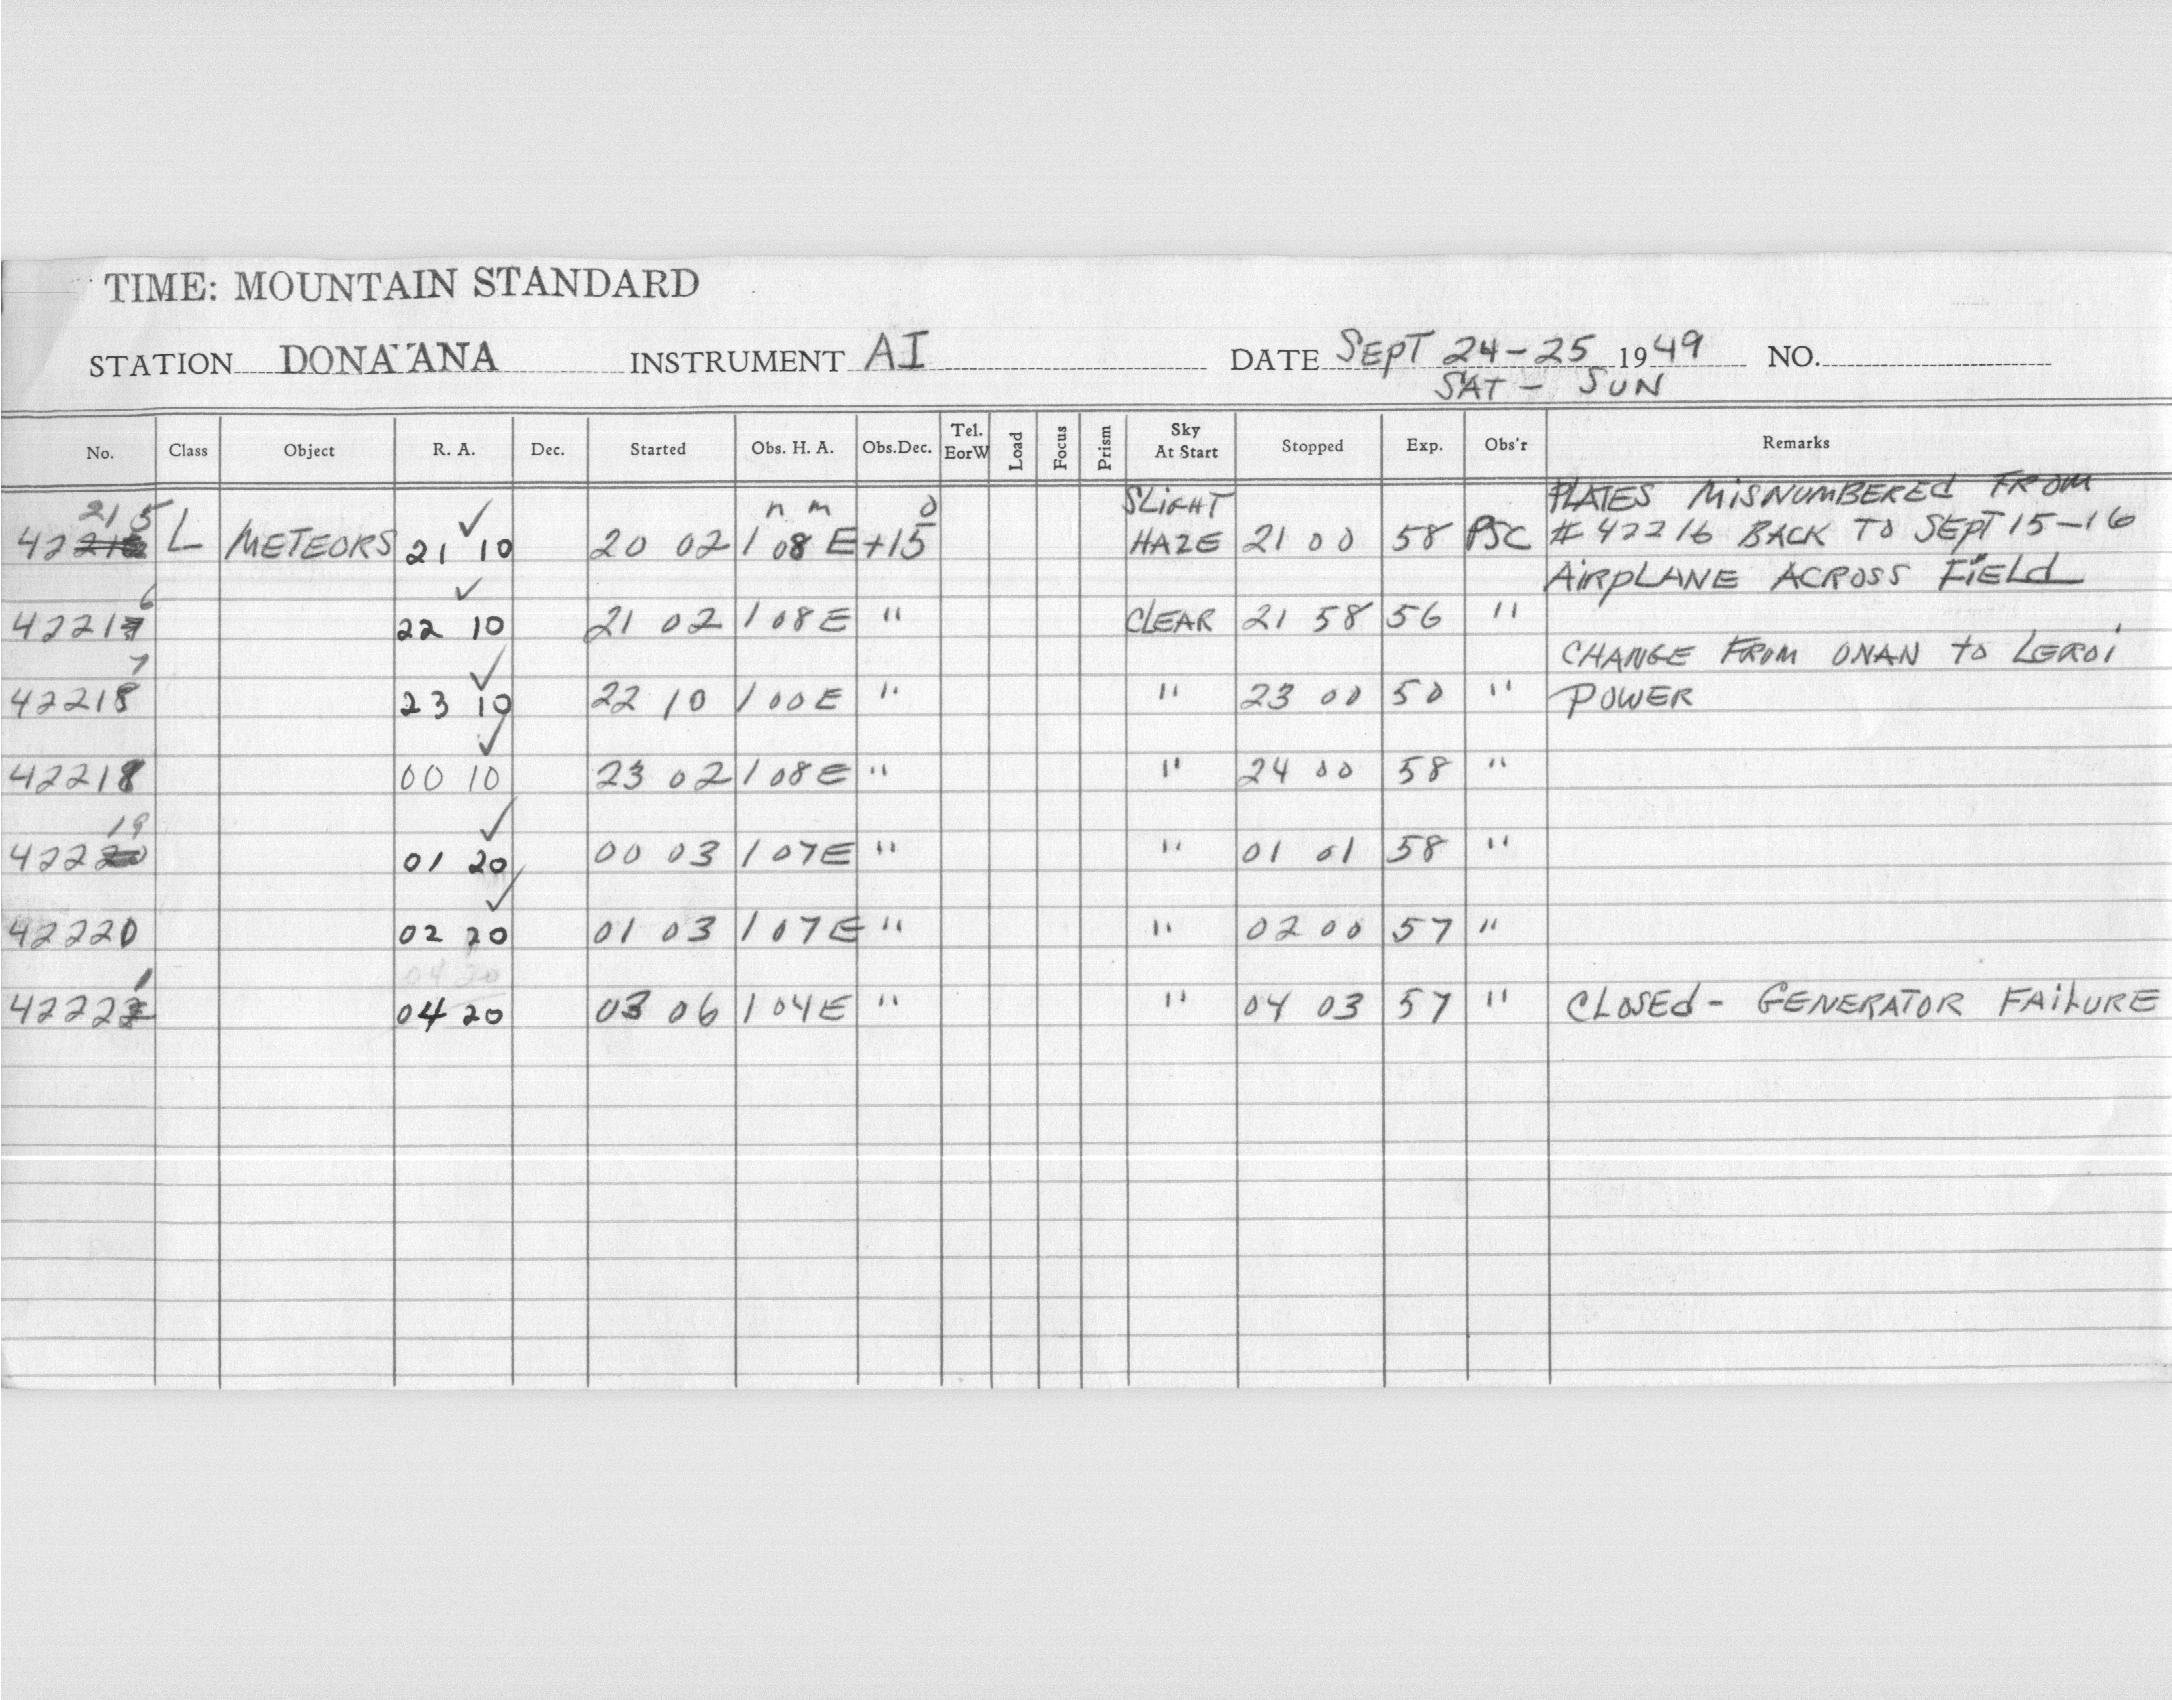 TIME: MOUNTAIN STANDARD
STATION DONA ANA INSTRUMENT AI DATE SEPT 24-25 1949 NO.
SAT - SUN
No. Class Object R. A. Dec. Started Obs. H. A. Obs.Dec. Tel. EorW Load Focus Prism Sky At Start Stopped Exp. Obs'r Remarks
215 h m 0 SLIGHT PLATES MISNUMBERED FROM
42216 L METEORS 21 10 20 02 1 08 E +15 HAZE 21 00 58 PSC # 42216 BACK TO SEPT 15-16
AIRPLANE ACROSS FIELD
6
42217 22 10 21 02 1 08 E " CLEAR 21 58 56 "
7 CHANGE FROM ONAN TO LEROI
42218 23 10 22 10 1 00 E " " 23 00 50 " POWER
42218 00 10 23 02 1 08 E " " 24 00 58 "
19
42220 01 20 00 03 1 07 E " " 01 01 58 "
42220 02 20 01 03 1 07 E " " 02 00 57 "
04 20
1
42222 04 20 03 06 1 04 E " " 04 03 57 " CLOSED - GENERATOR FAILURE